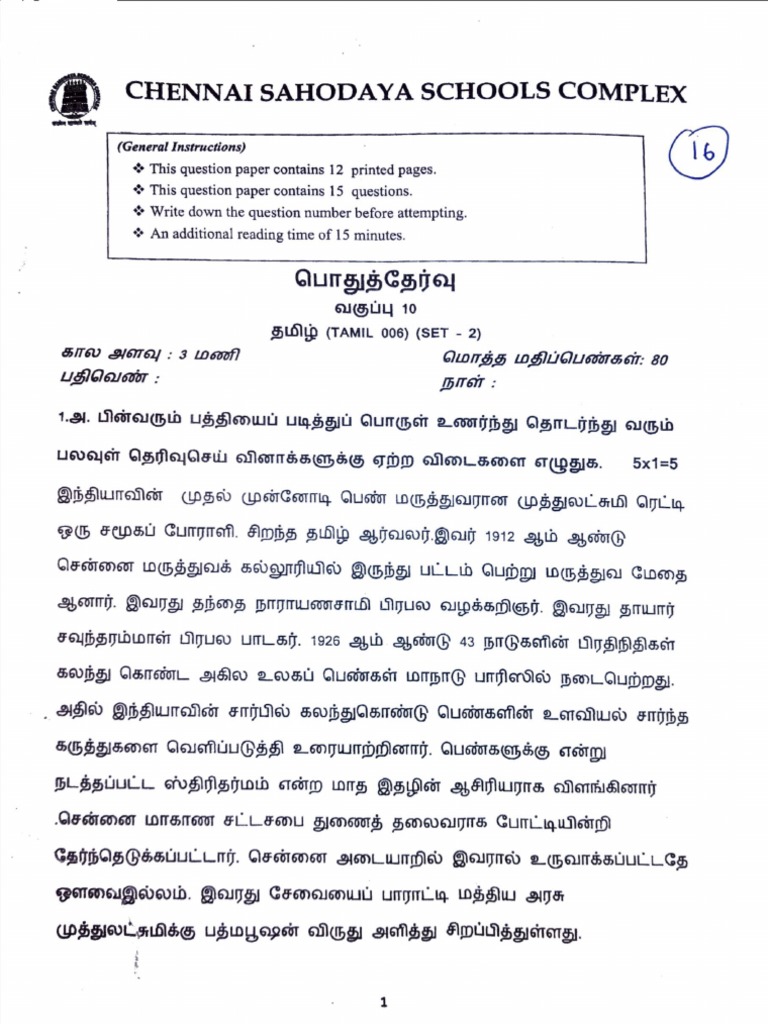 CHENNAI SAHODAYA SCHOOLS COMPLEX
16
(General Instructions)
❖ This question paper contains 12 printed pages.
❖ This question paper contains 15 questions.
❖ Write down the question number before attempting.
❖ An additional reading time of 15 minutes.
பொதுத்தேர்வு
வகுப்பு 10
தமிழ் (TAMIL 006) (SET - 2)
கால அளவு : 3 மணி மொத்த மதிப்பெண்கள்: 80
பதிவெண் : நாள் :
1.அ. பின்வரும் பத்தியைப் படித்துப் பொருள் உணர்ந்து தொடர்ந்து வரும்
பலவுள் தெரிவுசெய் வினாக்களுக்கு ஏற்ற விடைகளை எழுதுக. 5x1=5
இந்தியாவின் முதல் முன்னோடி பெண் மருத்துவரான முத்துலட்சுமி ரெட்டி
ஒரு சமூகப் போராளி. சிறந்த தமிழ் ஆர்வலர்.இவர் 1912 ஆம் ஆண்டு
சென்னை மருத்துவக் கல்லூரியில் இருந்து பட்டம் பெற்று மருத்துவ மேதை
ஆனார். இவரது தந்தை நாராயணசாமி பிரபல வழக்கறிஞர். இவரது தாயார்
சவுந்தரம்மாள் பிரபல பாடகர். 1926 ஆம் ஆண்டு 43 நாடுகளின் பிரதிநிதிகள்
கலந்து கொண்ட அகில உலகப் பெண்கள் மாநாடு பாரிஸில் நடைபெற்றது.
அதில் இந்தியாவின் சார்பில் கலந்துகொண்டு பெண்களின் உளவியல் சார்ந்த
கருத்துகளை வெளிப்படுத்தி உரையாற்றினார். பெண்களுக்கு என்று
நடத்தப்பட்ட ஸ்திரிதர்மம் என்ற மாத இதழின் ஆசிரியராக விளங்கினார்
.சென்னை மாகாண சட்டசபை துணைத் தலைவராக போட்டியின்றி
தேர்ந்தெடுக்கப்பட்டார். சென்னை அடையாறில் இவரால் உருவாக்கப்பட்டதே
ஔவைஇல்லம். இவரது சேவையைப் பாராட்டி மத்திய அரசு
முத்துலட்சுமிக்கு பத்மபூஷன் விருது அளித்து சிறப்பித்துள்ளது.
1